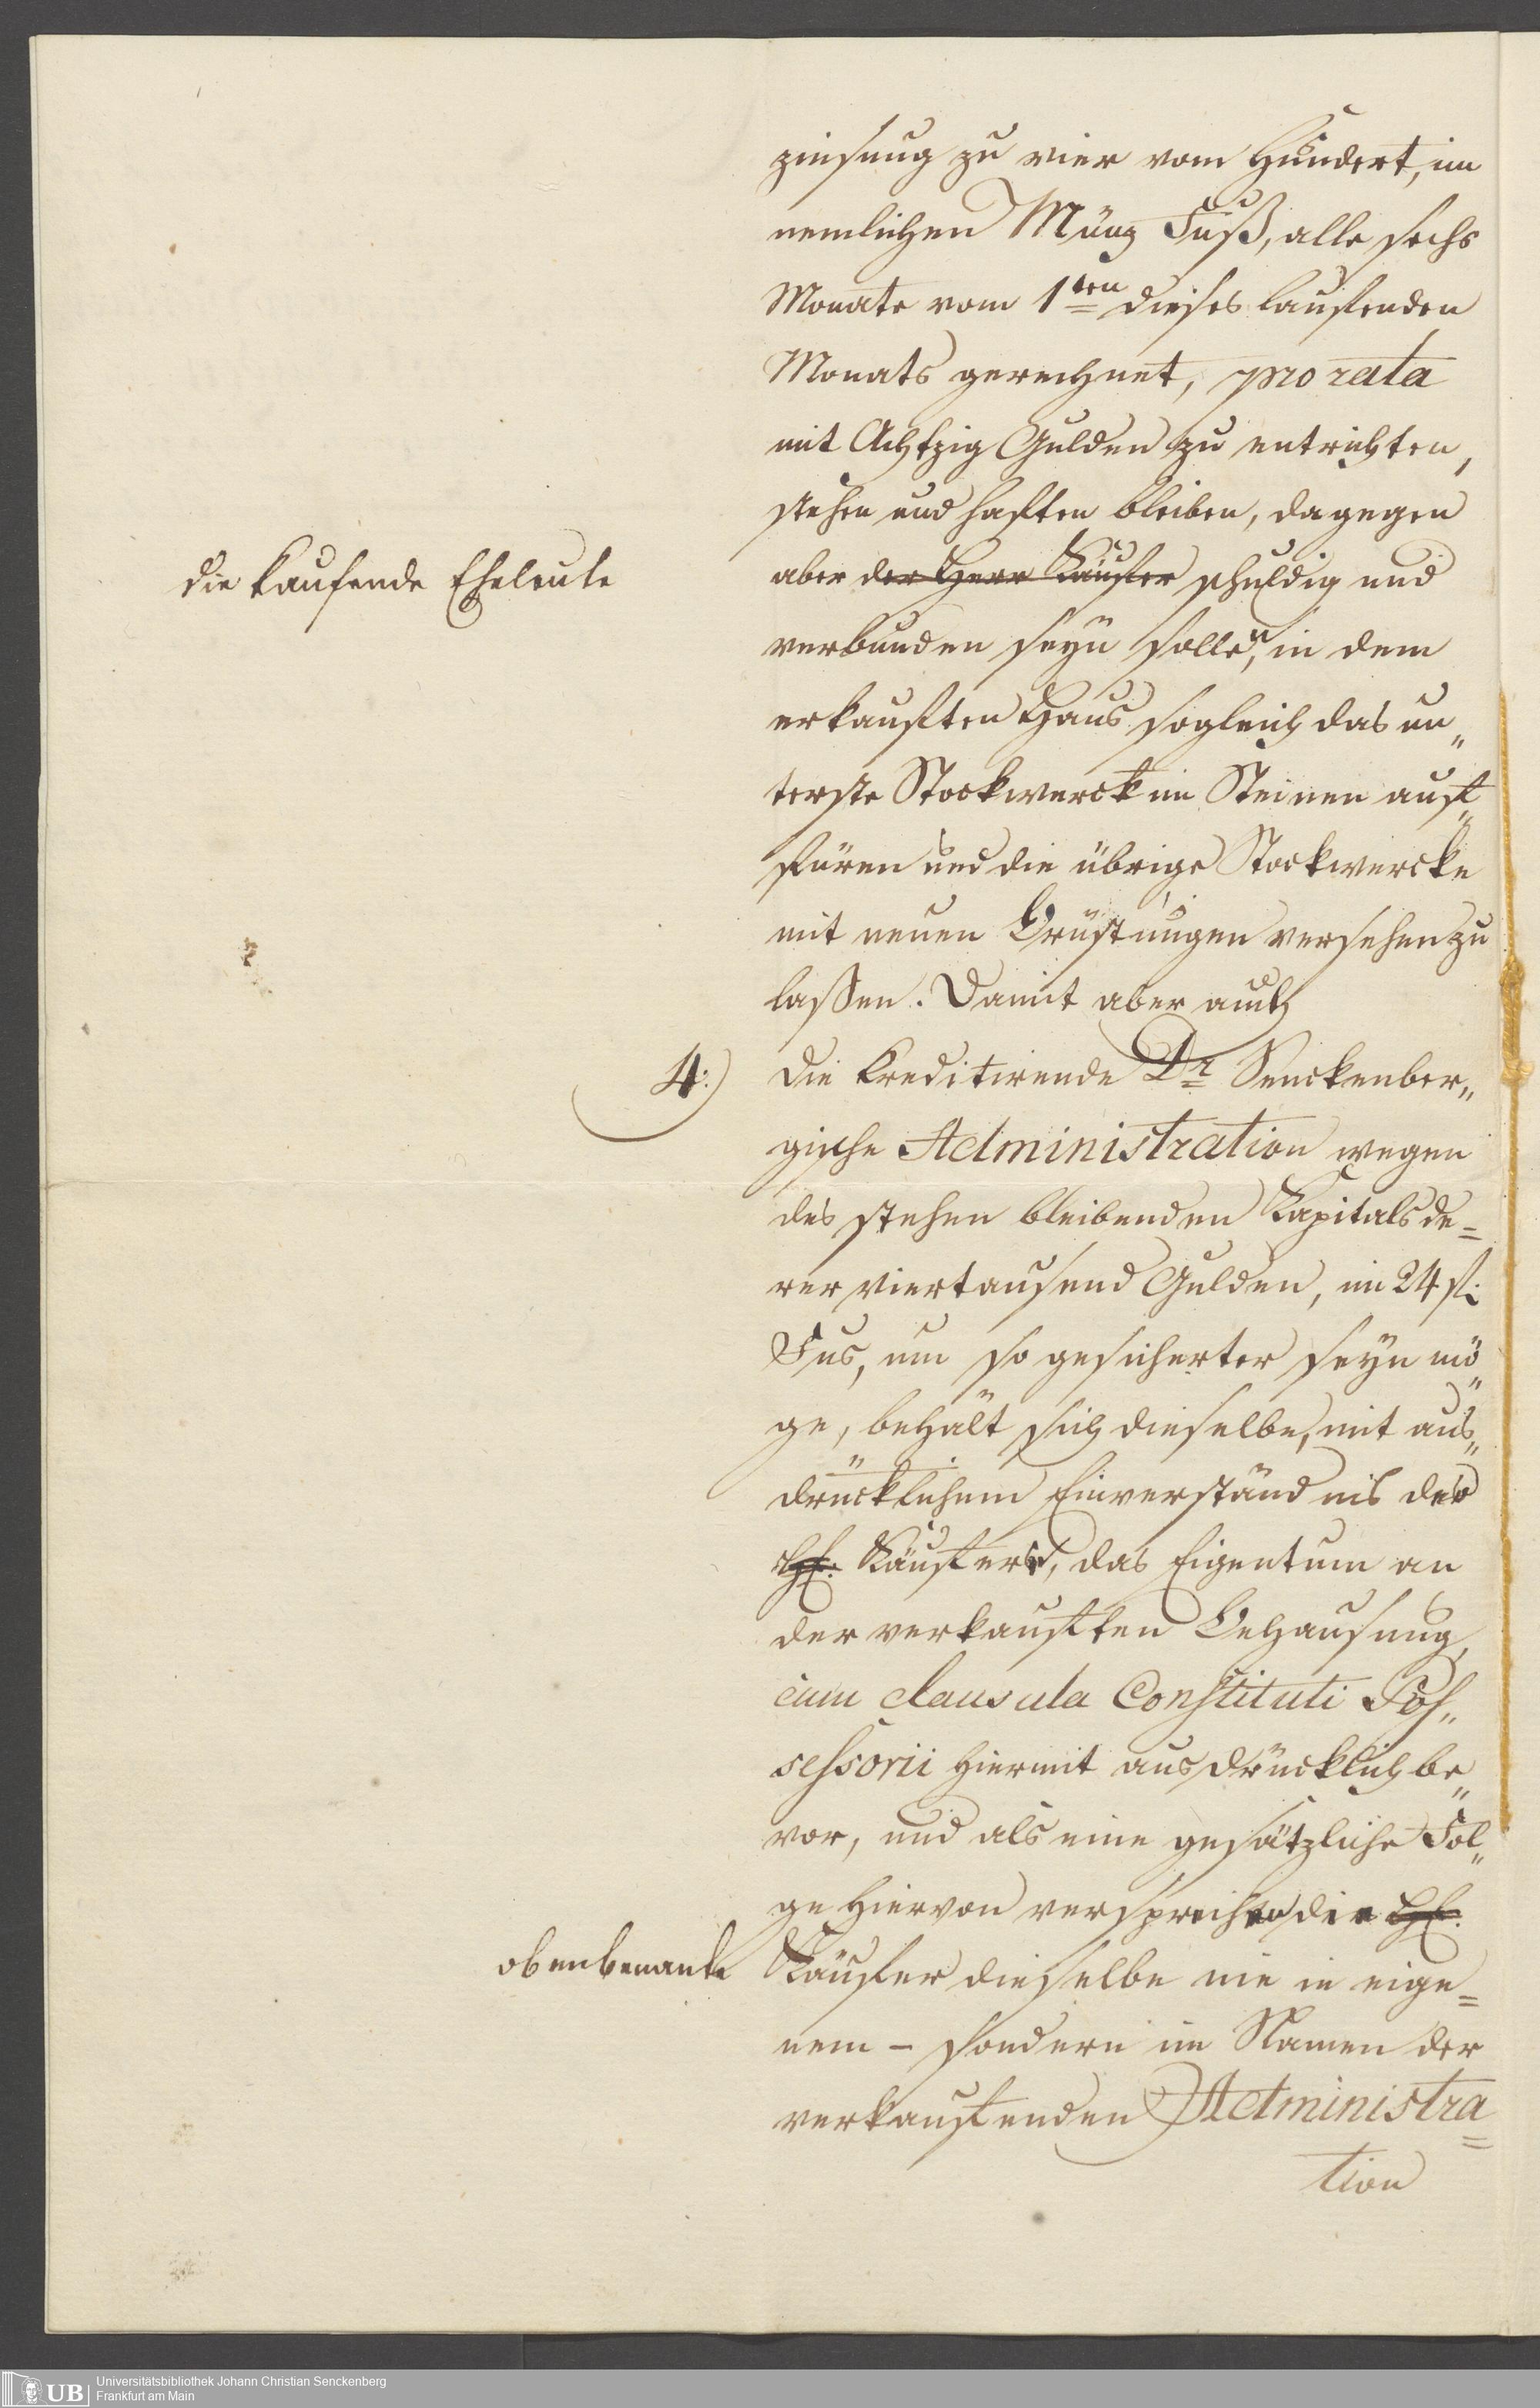 zinsung zu vier vom Hundert, im
nemlichen Münz Fuß, alle sechs
Monate vom 1ten dieses laufenden
Monats gerechnet, pro rata
mit Achtzig Gulden zu entrichten,
stehen und haften bleiben, dagegen
die kaufende Eheleute
aber der Herr Käufer schuldig und
verbunden seyn sollen, in dem
erkauften Haus sogleich das un„
terste Stockwerck in Steinen auf„
füren und die übrige Stockwercke
mit neuen Brüstungen versehen zu
lassen. Damit aber auch
4.) die Kreditirende Dr Senckenber„
gische Administration wegen
des stehen bleibenden Kapitals de=
rer viertausend Gulden, im 24 f.
Fus, um so gesicherter seyn mö„
ge, behält sich dieselbe, mit aus„
drücklichem Einverständnis der
Käufer, das Eigentum an
der verkauften Behausung,
cum clausula Constituti Pos„
sessorii hiermit ausdrücklich be„
vor, und als eine gesätzliche Fol„
ge hiervon versprechen die
obenbenante
Käufer dieselbe nie in eige=
nem – sondern im Namen der
verkaufenden Administra=
tion
Universitätsbibliothek Johann Christian Senckenberg
Frankfurt am Main
UB